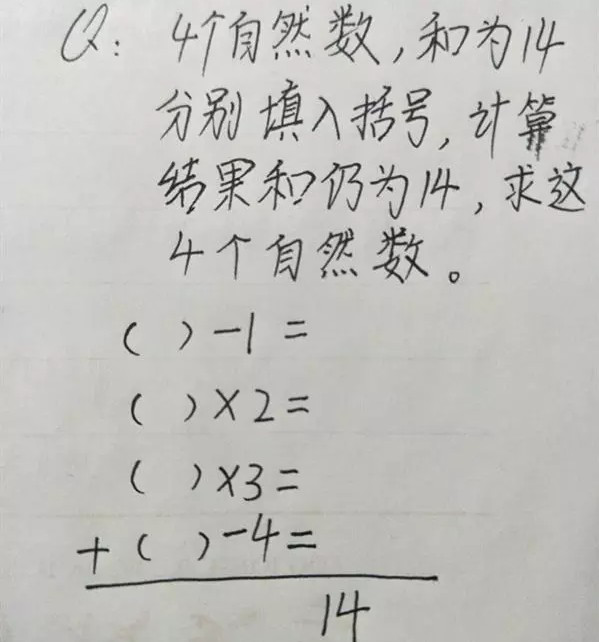 Q: 4个自然数,和为14
分别填入括号,计算
结果和仍为14,求这
4个自然数。
( )-1=
( )×2=
( )×3=
+( )-4=
14